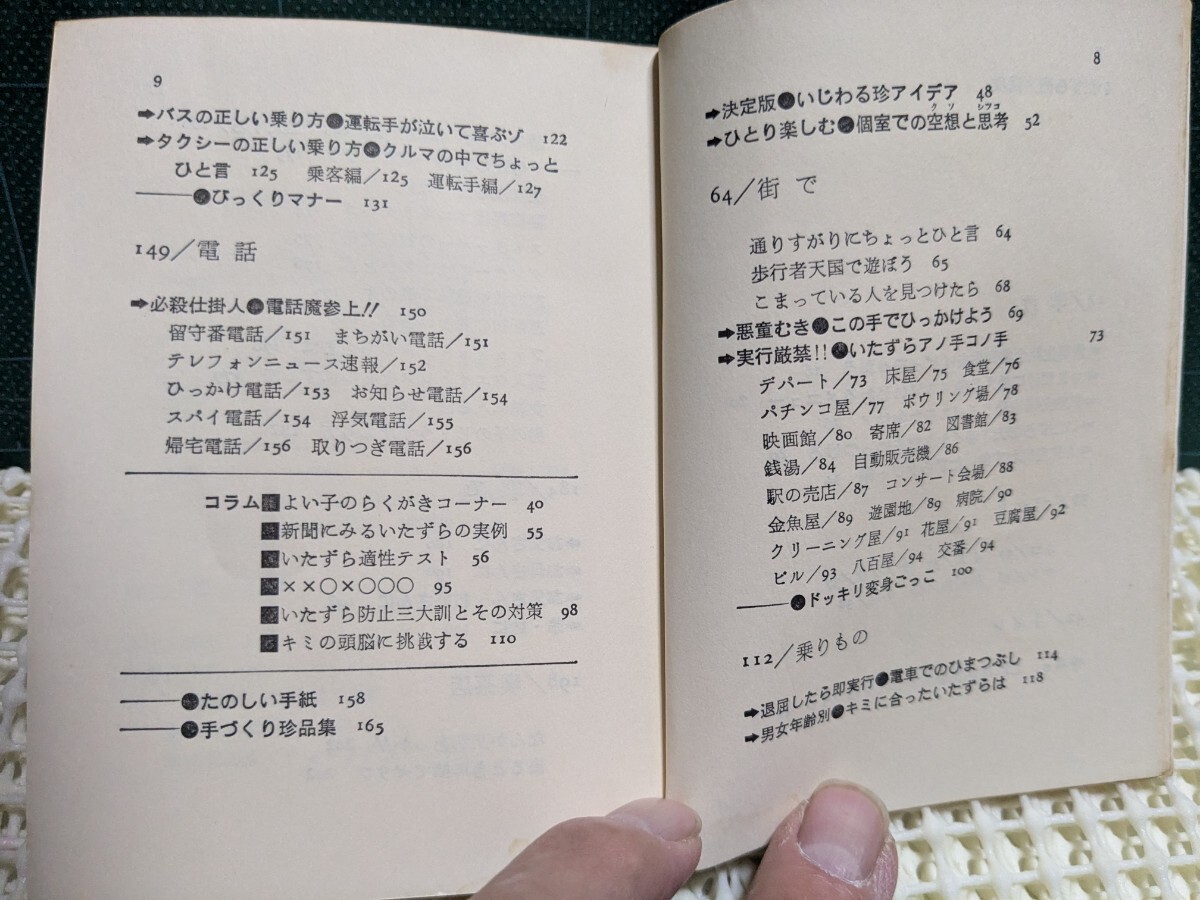 8
➡決定版●いじわる珍アイデア 48
クソ シツコ
➡ひとり楽しむ●個室での空想と思考 52
64/街で
通りすがりにちょっとひと言 64
歩行者天国で遊ぼう 65
こまっている人を見つけたら 68
➡悪童むき●この手でひっかけよう 69
➡実行厳禁!!●いたずらアノ手コノ手 73
デパート/73 床屋/75 食堂/76
パチンコ屋/77 ボウリング場/78
映画館/80 寄席/82 図書館/83
銭湯/84 自動販売機/86
駅の売店/87 コンサート会場/88
金魚屋/89 遊園地/89 病院/90
クリーニング屋/91 花屋/91 豆腐屋/92
ビル/93 八百屋/94 交番/94
――●ドッキリ変身ごっこ 100
112/乗りもの
➡退屈したら即実行●電車でのひまつぶし 114
➡男女年齢別●キミに合ったいたずらは 118
9
➡バスの正しい乗り方●運転手が泣いて喜ぶゾ 122
➡タクシーの正しい乗り方●クルマの中でちょっと
ひと言 125 乗客編/125 運転手編/127
――●びっくりマナー 131
149/電話
➡必殺仕掛人●電話魔参上!! 150
留守番電話/151 まちがい電話/151
テレフォンニュース速報/152
ひっかけ電話/153 お知らせ電話/154
スパイ電話/154 浮気電話/155
帰宅電話/156 取りつぎ電話/156
コラム■よい子のらくがきコーナー 40
■新聞にみるいたずらの実例 55
■いたずら適性テスト 56
■××○×○○○ 95
■いたずら防止三大訓とその対策 98
■キミの頭脳に挑戦する 110
――●たのしい手紙 158
――●手づくり珍品集 165